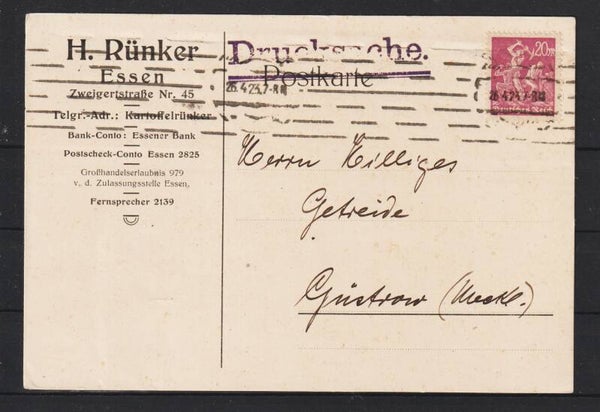 H. Rünker
Essen
Zweigertstraße Nr. 45
Telgr.-Adr.: Kartoffelrünker
Bank-Conto: Essener Bank
Postscheck-Conto Essen 2825
Großhandelserlaubnis 979
v. d. Zulassungsstelle Essen,
Fernsprecher 2139
Drucksache.
Postkarte
20m
Herrn Hilliges
Getreide
Güstrow (Meckl.)